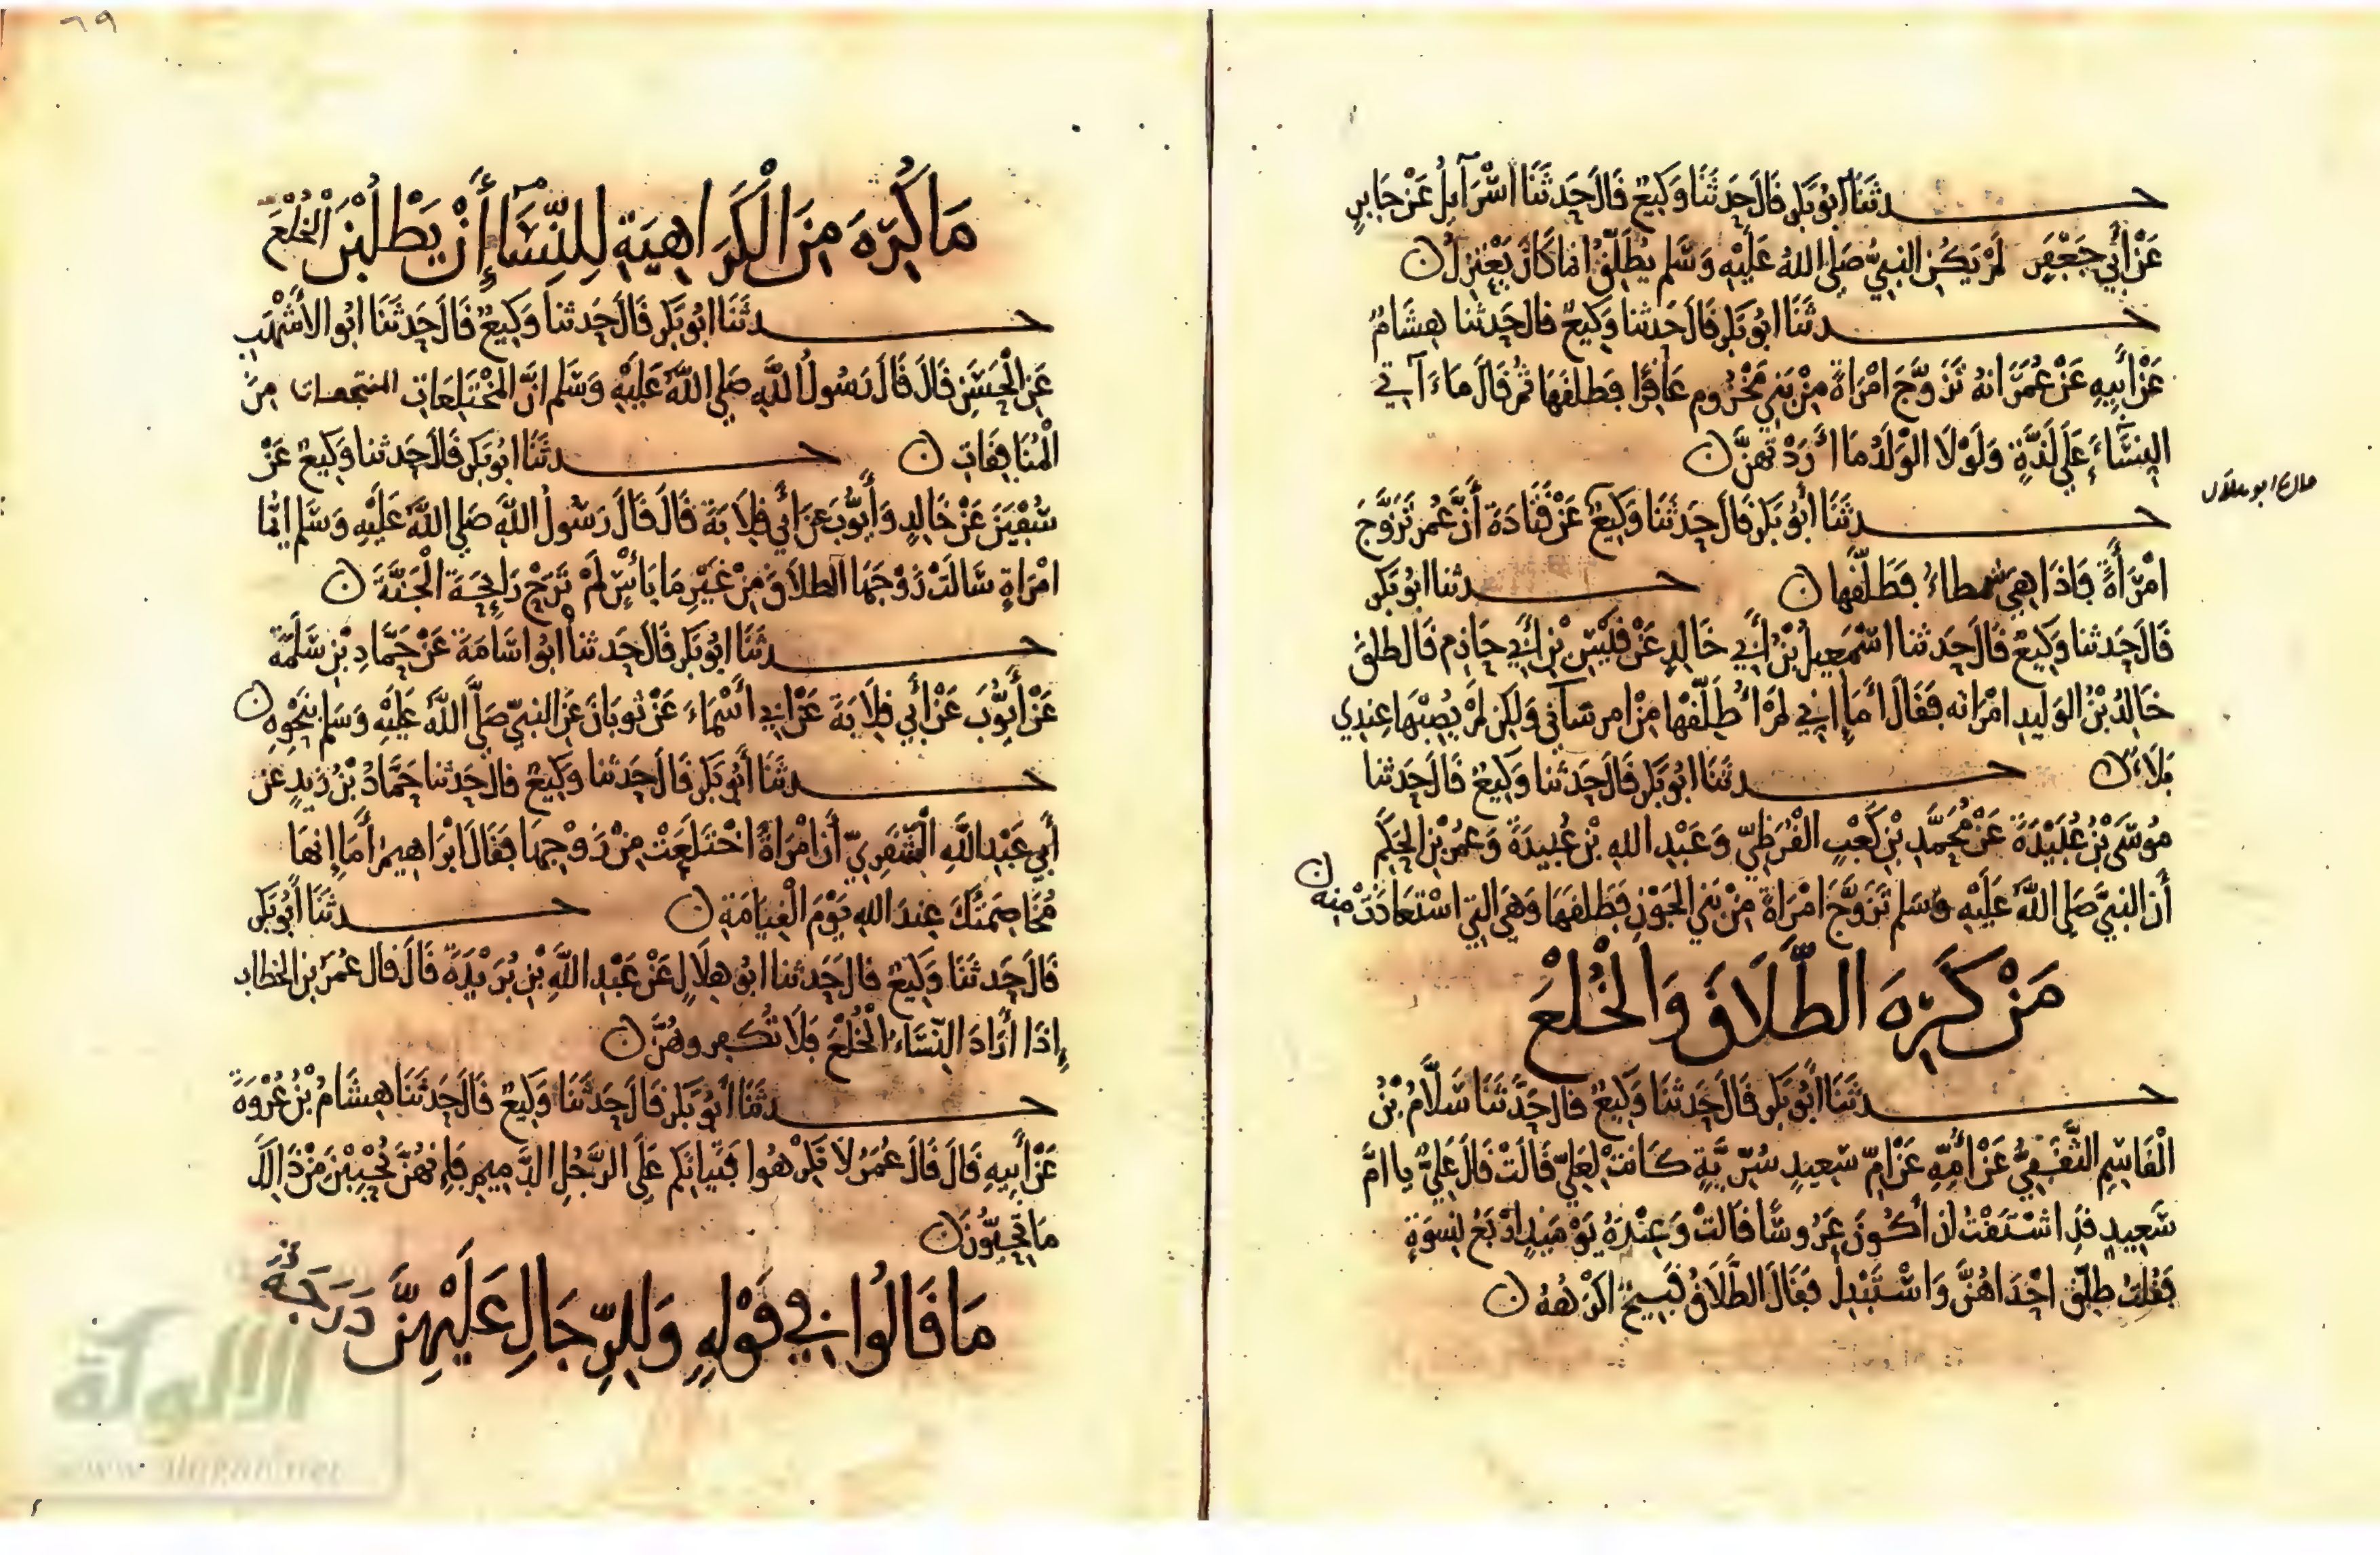 حدثنا ابو بكر قال حدثنا وكيع قال حدثنا اسرآيل عن جابر
عن أبي جعفر لم يكن النبي صلى الله عليه وسلم يطلق انما كان يعتزل
حدثنا ابو بكر قال حدثنا وكيع قال حدثنا هشام
عن أبيه عن عمر انه تزوج امرأة من بني مخزوم عاقرا فطلقها ثم قال ماء آتي
النساء على لذة ولولا الولد ما أردتهن
حدثنا أبو بكر قال حدثنا وكيع عن قتادة أن عمر تزوج
ابو هلال
امرأة فاذا هي شمطاء فطلقها حدثنا ابو بكر
قال حدثنا وكيع قال حدثنا اسمعيل بن أبي خالد عن قيس بن أبي حازم قال طلق
خالد بن الوليد امراته فقال أما إني لم أطلقها من امر سآني ولكن لم يصبها عندي
بلاء حدثنا ابو بكر قال حدثنا وكيع قال حدثنا
موسى بن عبيدة عن محمد بن كعب القرظي وعبد الله بن عبيدة وعمر بن الحكم
أن النبي صلى الله عليه وسلم تزوج امرأة من بني الجون فطلقها وهي التي استعاذت منه
من كره الطلاق والخلع
حدثنا أبو بكر قال حدثنا وكيع قال حدثنا سلام بن
القاسم الثقفي عن أمه عن ام سعيد سرية كانت لعلي قالت قال علي يا ام
سعيد قد اشتقت ان أكون عروسا قالت وعنده يومئذ اربع نسوة
فقلت طلق احداهن واستبدل فقال الطلاق قبيح اكرهه
٦٩
ما كره من الكراهية للنساء أن يطلبن الخلع
حدثنا ابو بكر قال حدثنا وكيع قال حدثنا ابو الأشهب
عن الحسن قال قال رسول الله صلى الله عليه وسلم ان المختلعات من
المنافقات حدثنا ابو بكر قال حدثنا وكيع عن
سفين عن خالد وأيوب عن أبي قلابة قال قال رسول الله صلى الله عليه وسلم ايما
امراة سالت زوجها الطلاق من غير ما بأس لم ترح رايحة الجنة
حدثنا ابو بكر قال حدثنا ابو اسامة عن حماد بن سلمة
عن أيوب عن أبي قلابة عن ابي أسماء عن ثوبان عن النبي صلى الله عليه وسلم بنحوه
حدثنا أبو بكر قال حدثنا وكيع قال حدثنا حماد بن زيد عن
أبي عبد الله الشقري أن امرأة اختلعت من زوجها فقال ابراهيم أما إنها
مخاصمتك عند الله يوم القيامة حدثنا أبو بكر
قال حدثنا وكيع قال حدثنا ابو هلال عن عبد الله بن بريدة قال قال عمر بن الخطاب
إذا أراد النساء الخلع فلا تكفروهن
حدثنا أبو بكر قال حدثنا وكيع قال حدثنا هشام بن عروة
عن أبيه قال قال عمر لا تكرهوا فتياتكم على الرجل الدميم فإنهن يحببن من ذلك
ما تحبون
ما قالوا في قوله وللرجال عليهن درجة
الألوكة
www.alukah.net